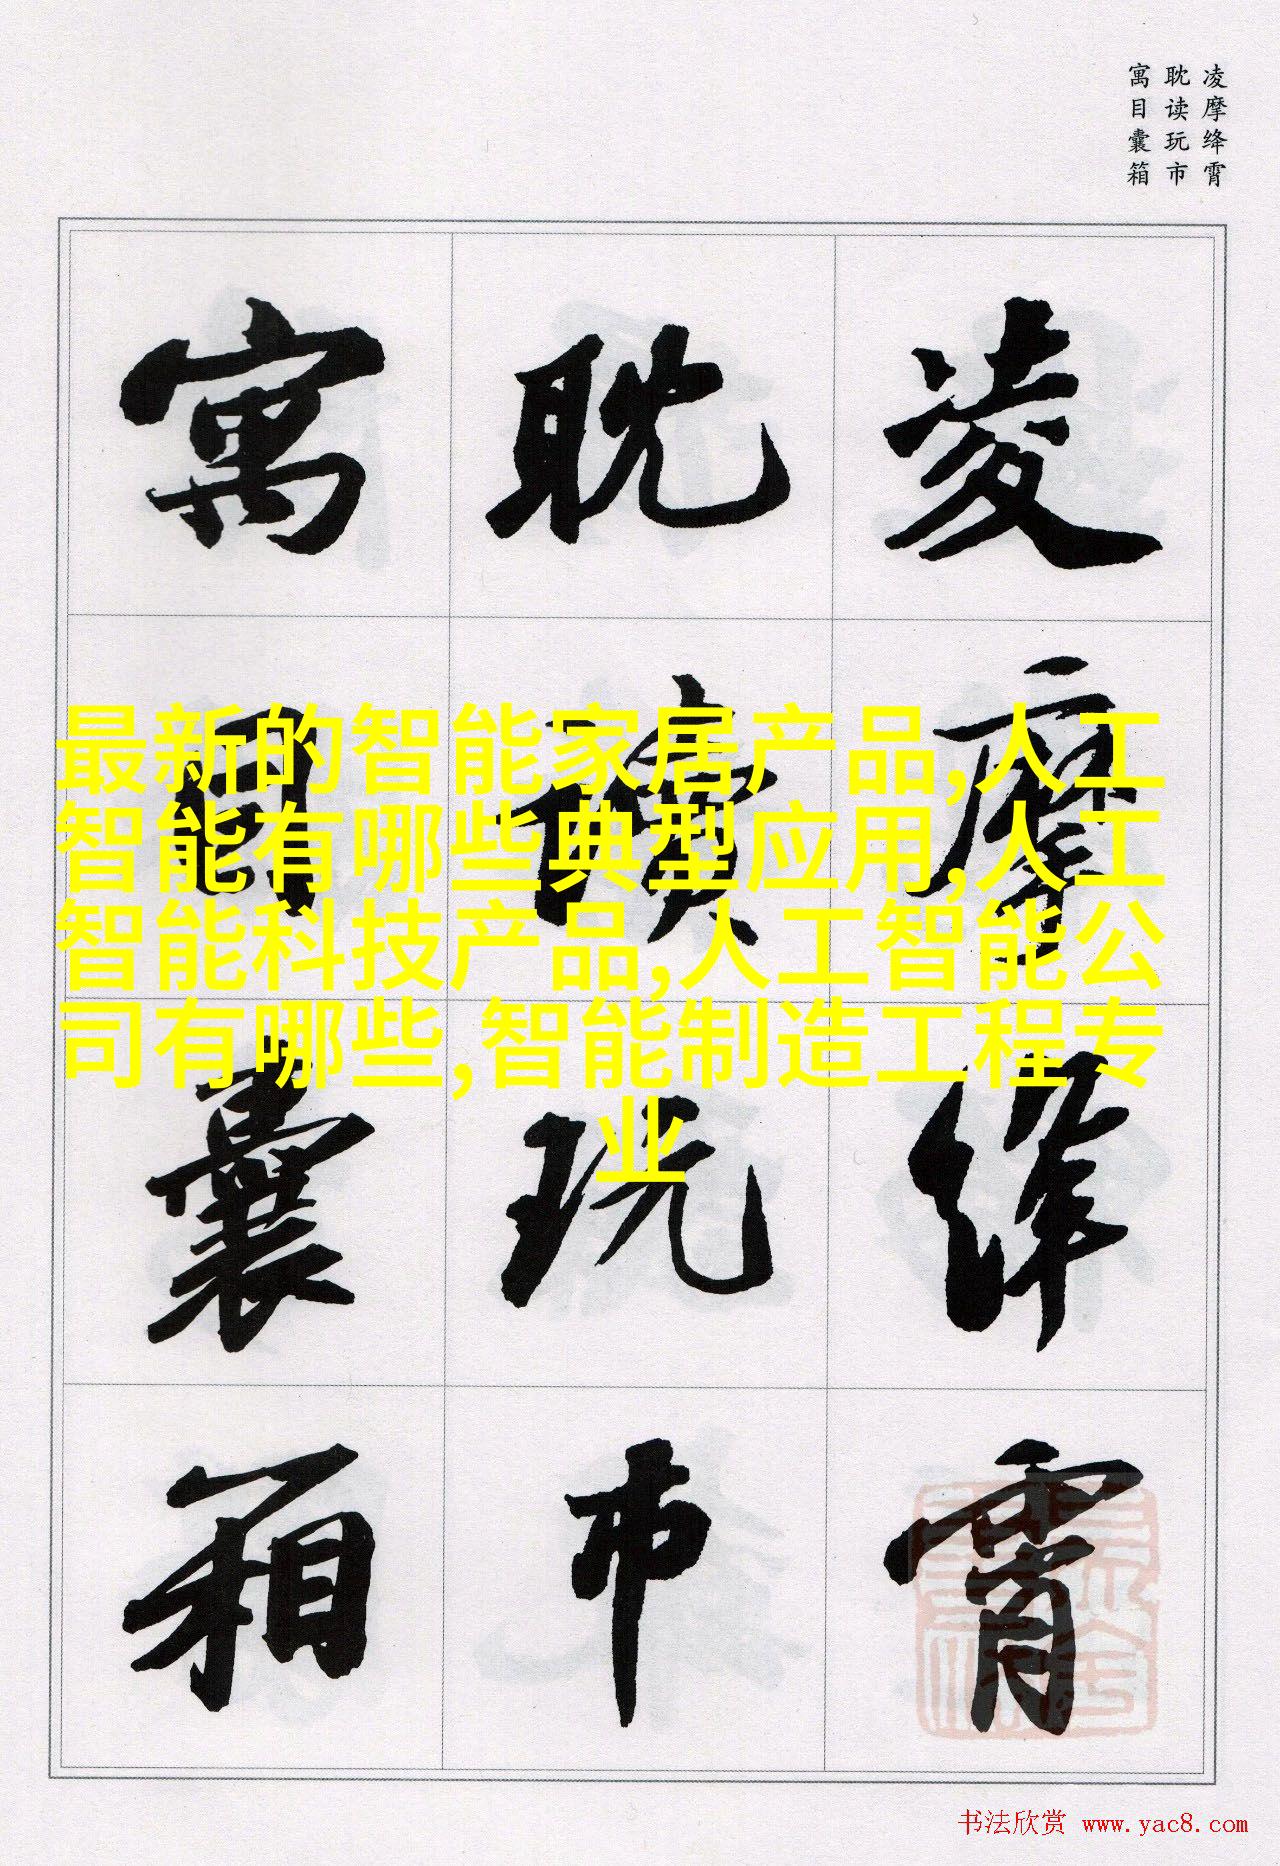 凌摩绛霄
耽读玩市
寓目囊箱
凌摩绛霄
耽讀玩市
寓目囊箱
最新的智能家居产品,人工
智能有哪些典型应用,人工
智能科技产品,人工智能公
司有哪些,智能制造工程专
业
书法欣赏 www.yac8.com